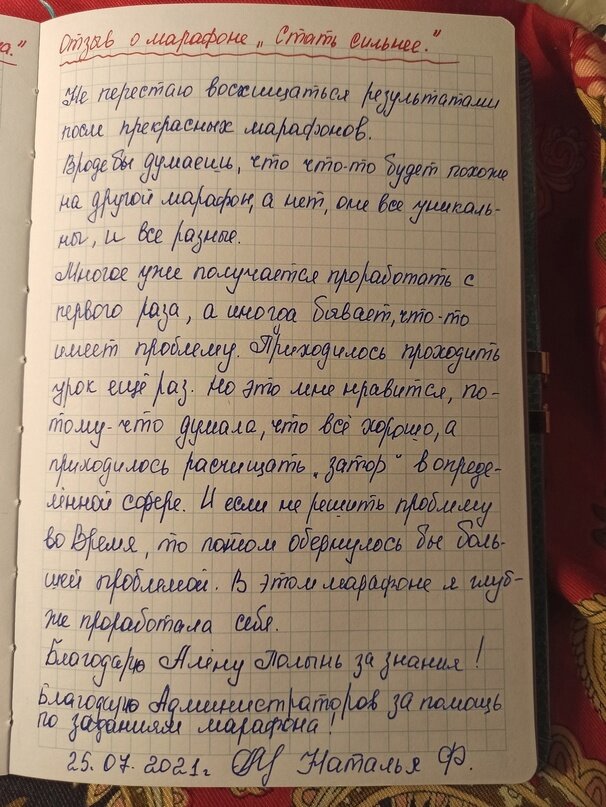 а."
Отзыв о марафоне „Стать сильнее."
Не перестаю восхищаться результатами
после прекрасных марафонов.
Вроде бы думаешь, что что-то будет похоже
на другой марафон, а нет, они все уникаль-
ны, и все разные.
Многое уже получается проработать с
первого раза, а иногда бывает, что-то
имеет проблему. Приходилось проходить
урок ещё раз. Но это мне нравится, по-
тому-что думала, что всё хорошо, а
приходилось расчищать „затор" в опреде-
лённой сфере. И если не решить проблему
во Время, то потом обернулось бы боль-
шей проблемой. В этом марафоне я глуб-
же проработала себя.
Благодарю Алёну Полынь за знания!
Благодарю Администраторов за помощь
по заданиям марафона!
25.07.2021г Наталья Ф.